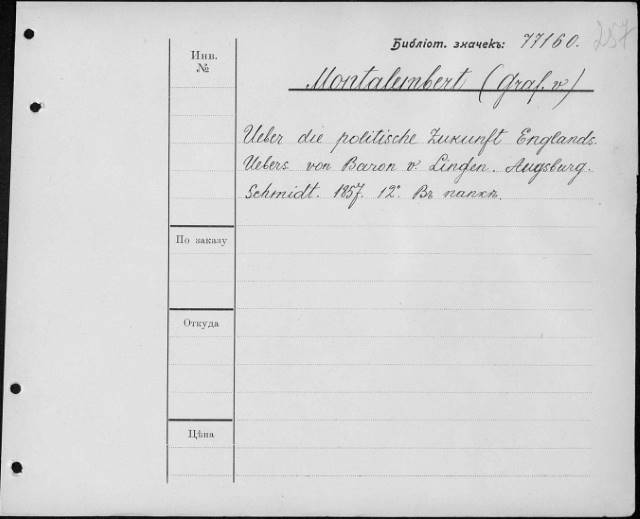 Библіот. значекъ: 77160. 257
Инв.
№
Montalembert (Graf. v)
Ueber die politische Zukunft Englands.
Uebers von Baron v. Lingen. Augsburg.
Schmidt. 1857. 12° Въ папкѣ.
По заказу
Откуда
Цѣна